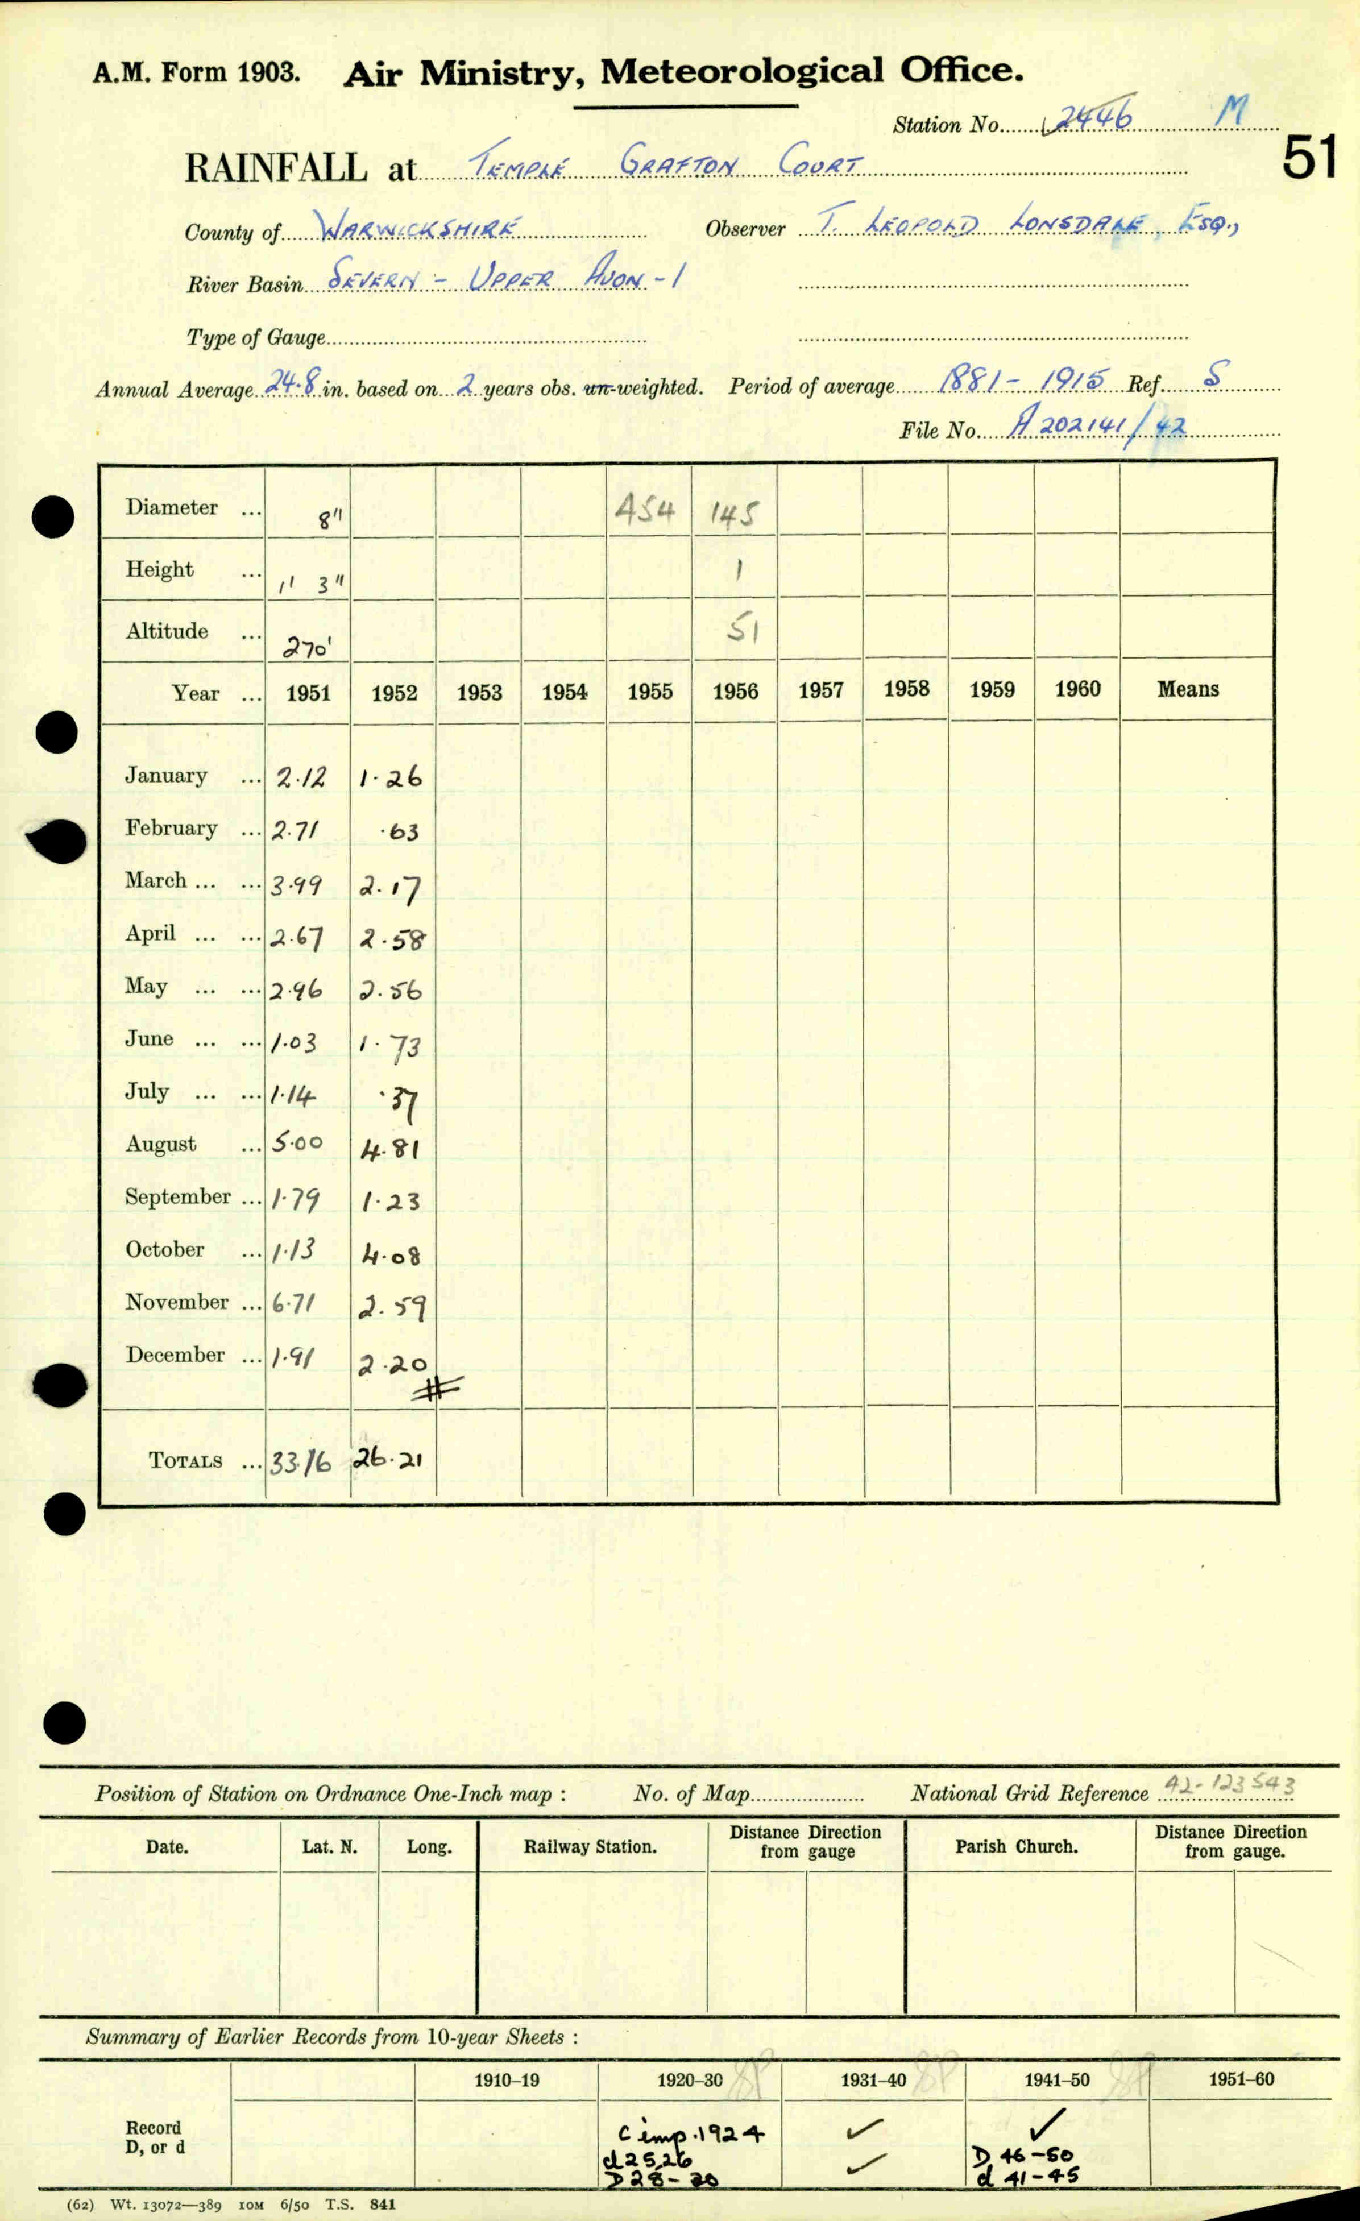 A.M. Form 1903. Air Ministry, Meteorological Office.
Station No. 2446 M
51
RAINFALL at TEMPLE GRAFTON COURT
County of WARWICKSHIRE Observer T. LEOPOLD LONSDALE, ESQ.,
River Basin SEVERN - UPPER AVON - 1
Type of Gauge
Annual Average 24.8 in. based on 2 years obs. un-weighted. Period of average 1881 - 1915 Ref. S
File No. A 202141/42
Diameter ... 8" 454 145
Height ... 1' 3" 1
Altitude ... 270' 51
Year ... 1951 1952 1953 1954 1955 1956 1957 1958 1959 1960 Means
January ... 2.12 1.26
February ... 2.71 .63
March ... ... 3.99 2.17
April ... ... 2.67 2.58
May ... ... 2.96 2.56
June ... ... 1.03 1.73
July ... ... 1.14 .37
August ... 5.00 4.81
September ... 1.79 1.23
October ... 1.13 4.08
November ... 6.71 2.59
December ... 1.91 2.20
TOTALS ... 33.16 26.21
Position of Station on Ordnance One-Inch map : No. of Map National Grid Reference 42-123543
Date. Lat. N. Long. Railway Station. Distance Direction from gauge Parish Church. Distance Direction from gauge.
Summary of Earlier Records from 10-year Sheets :
1910–19 1920–30 1931–40 1941–50 1951–60
Record C imp. 1924 ✓ ✓
D, or d d 25,26 ✓ D 46-50
D 28-30 d 41-45
(62) Wt. 13072—389 10M 6/50 T.S. 841